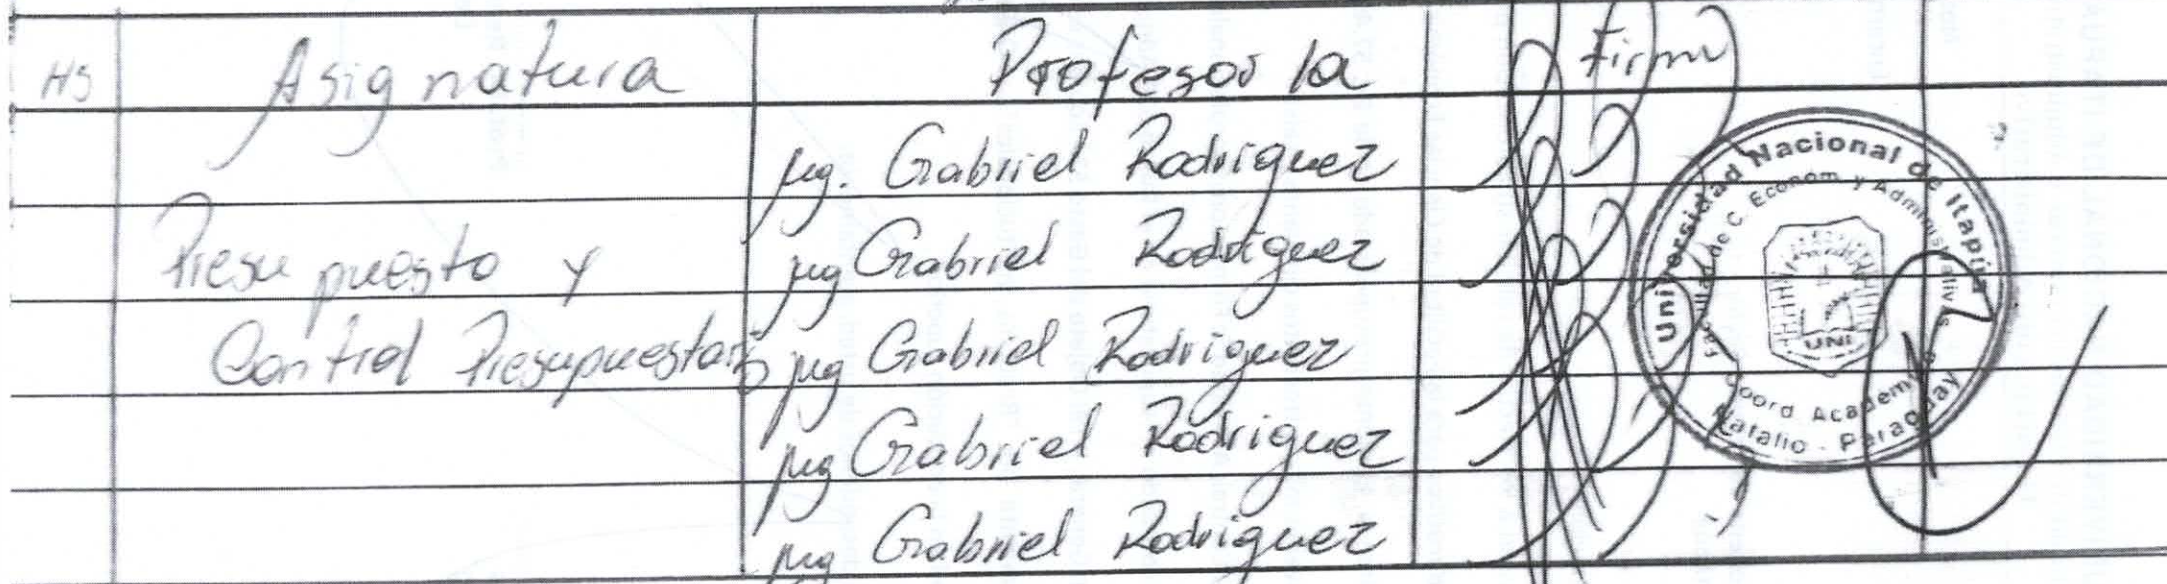 HS Asignatura Profesor/a Firma
Mg. Gabriel Rodriguez
Presupuesto y Mg Gabriel Rodriguez
Control Presupuestario Mg Gabriel Rodriguez
Mg Gabriel Rodriguez
Mg Gabriel Rodriguez
Universidad Nacional de Itapúa
Facultad de C. Econom. y Administrativas
UNI
Coord. Académica
Natalio - Paraguay